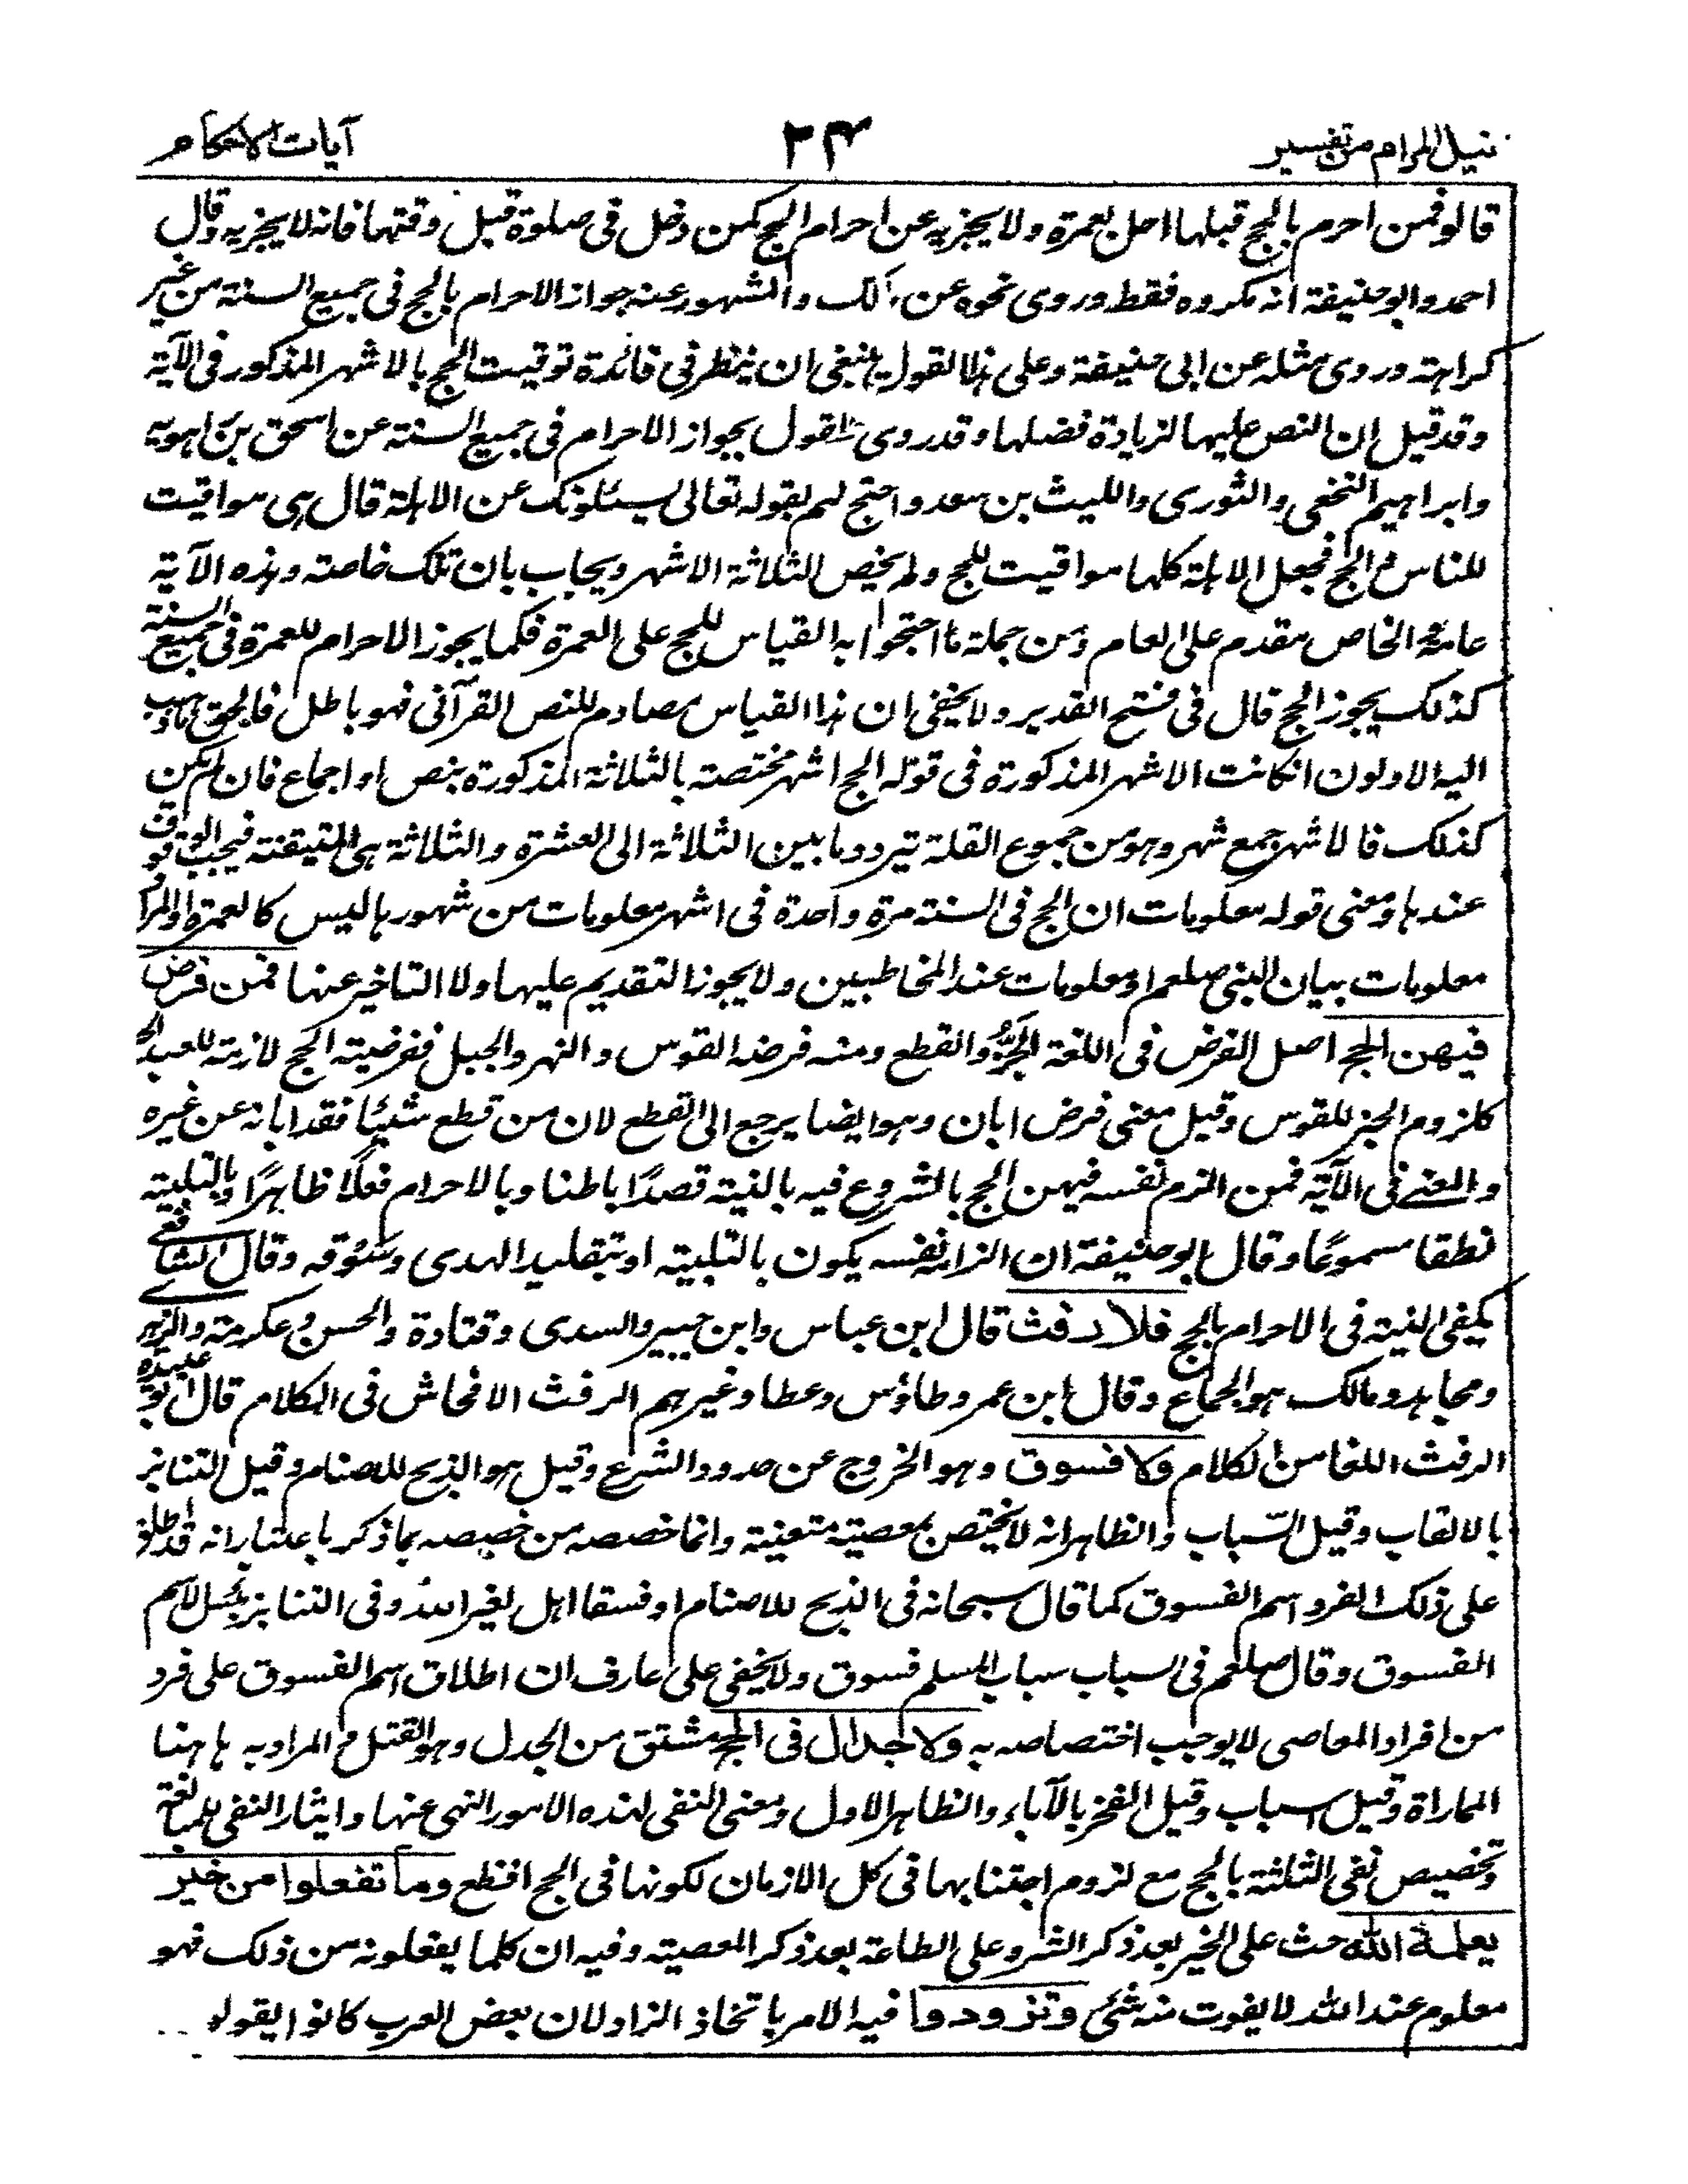 نیل المرام من تفسیر ۲۴ آیات الاحکام
قالو فمن احرم بالحج قبلہا احل بعمرة ولا یجزیہ عن احرام الحج کمن دخل فی صلوة قبل وقتہا فانہ لا یجزیہ وقال
احمد وابو حنیفة انہ مکروہ فقط وروی نحوہ عن مالک والمشہور عنہ جواز الاحرام بالحج فی جمیع السنة من غیر
کراہتہ وروی مثلہ عن ابی حنیفة وعلی ہذا القول ینبغی ان ینظر فی فائدة توقیت الحج بالاشہر المذکور فی الآیة
وقد قیل ان النص علیہا لزیادة فضلہا وقد روی القول بجواز الاحرام فی جمیع السنتہ عن اسحق بن راہویہ
وابراہیم النخعی والثوری واللیث بن سعد واحتج لہم بقولہ تعالی یسئلونک عن الاہلة قال ہی مواقیت
للناس والحج فجعل الاہلة کلہا مواقیت للحج ولم یخص الثلاثة الاشہر ویجاب بان تلک خاصتہ وہذہ الآیة
عامة والخاص مقدم علی العام ومن جملة ما احتجوا بہ القیاس للحج علی العمرة فکما یجوز الاحرام للعمرة فی جمیع السنة
کذلک یجوز الحج قال فی فتح القدیر ولا یخفی ان ہذا القیاس مصادم للنص القرآنی فہو باطل فالحق ما ذہب
الیہ الاولون انکانت الاشہر المذکورة فی قولہ الحج اشہر مختصتہ بالثلاثة المذکورة بنص او اجماع فان لم یکن
کذلک فالاشہر جمع شہر وہو من جموع القلة یتردد ما بین الثلاثة الی العشرة والثلاثة ہی المتیقنتہ فیجب الوقوف
عندہا ومعنی قولہ معلومات ان الحج فی السنتہ مرة واحدة فی اشہر معلومات من شہورہا لیس کالعمرة او المراد
معلومات ببیان النبی صلعم او معلومات عند المخاطبین ولا یجوز التقدیم علیہا ولا التاخیر عنہا فمن فرض
فیھن الحج اصل الفرض فی اللغة الحَزُّ والقطع ومنہ فرضہ القوس والنہر والجبل ففرضیتہ الحج لازمتہ للعبد الحر
کلزوم الحز للقوس وقیل معنی فرض ابان وہو ایضا یرجع الی القطع لان من قطع شیئًا فقد ابانہ عن غیرہ
والمعنے فی الآیة فمن الزم نفسہ فیہن الحج بالشروع فیہ بالنیتہ قصدًا باطنا وبالاحرام فعلًا ظاہرًا وبالتلبیتہ
نطقا مسموعًا وقال ابو حنیفة ان الزامہ نفسہ یکون بالتلبیتہ او بتقلید الہدی وسَوُقہ وقال الشافعے
یکفی النیتہ فی الاحرام بالحج فلا رفث قال ابن عباس وابن جبیر والسدی وقتادة والحسن وعکرمتہ والزہری
ومجاہد ومالک ہو الجماع وقال ابن عمر وطاؤس وعطا وغیرہم الرفث الافحاش فی الکلام قال ابو عبیدة
الرفث اللغا من الکلام ولا فسوق وہو الخروج عن حدود الشرع وقیل ہو الذبح للاصنام وقیل التنابز
بالالقاب وقیل السّباب والظاہر انہ لا یختص بمعصیتہ متعینتہ وانما خصصہ من خصصہ بما ذکر باعتبار انہ قد اطلق
علی ذلک الفرد اسم الفسوق کما قال سبحانہ فی الذبح للاصنام او فسقا اہل لغیر اللہ وفی التنابز بئس الاسم
الفسوق وقال صلعم فی السباب سباب المسلم فسوق ولا یخفی علی عارف ان اطلاق اسم الفسوق علی فرد
من افراد المعاصی لا یوجب اختصاصہ بہ ولا جدال فی الحج مشتق من الجدل وہو القتل والمراد بہ ہاہنا
المماراة وقیل السباب وقیل الفخر بالآباء والظاہر الاول ومعنی النفی لہذہ الامور النہی عنہا وایثار النفی للمبالغة
وتخصیص نفی الثلثة بالحج مع لزوم اجتنابہا فی کل الازمان لکونہا فی الحج افظع وما تفعلوا من خیر
یعلمہ اللہ حث علی الخیر بعد ذکر الشر وعلی الطاعة بعد ذکر المعصیتہ وفیہ ان کلما یفعلونہ من ذلک فہو
معلوم عند اللہ لا یفوت منہ شئ وتزودوا فیہ الامر باتخاذ الزاد لان بعض العرب کانوا یقولو